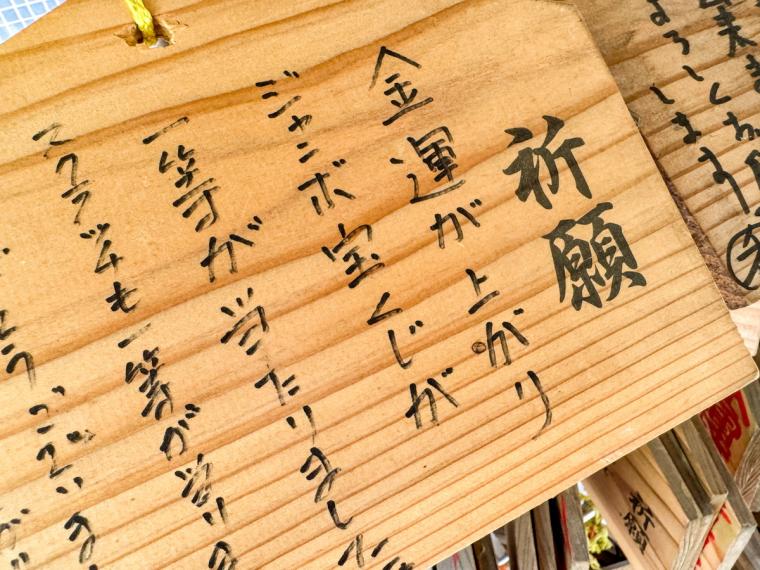 祈願
金運が上がり
ジャンボ宝くじが
一等が当たりました
スクラッチも一等が当りま
とうございま
よろしくします
祈願